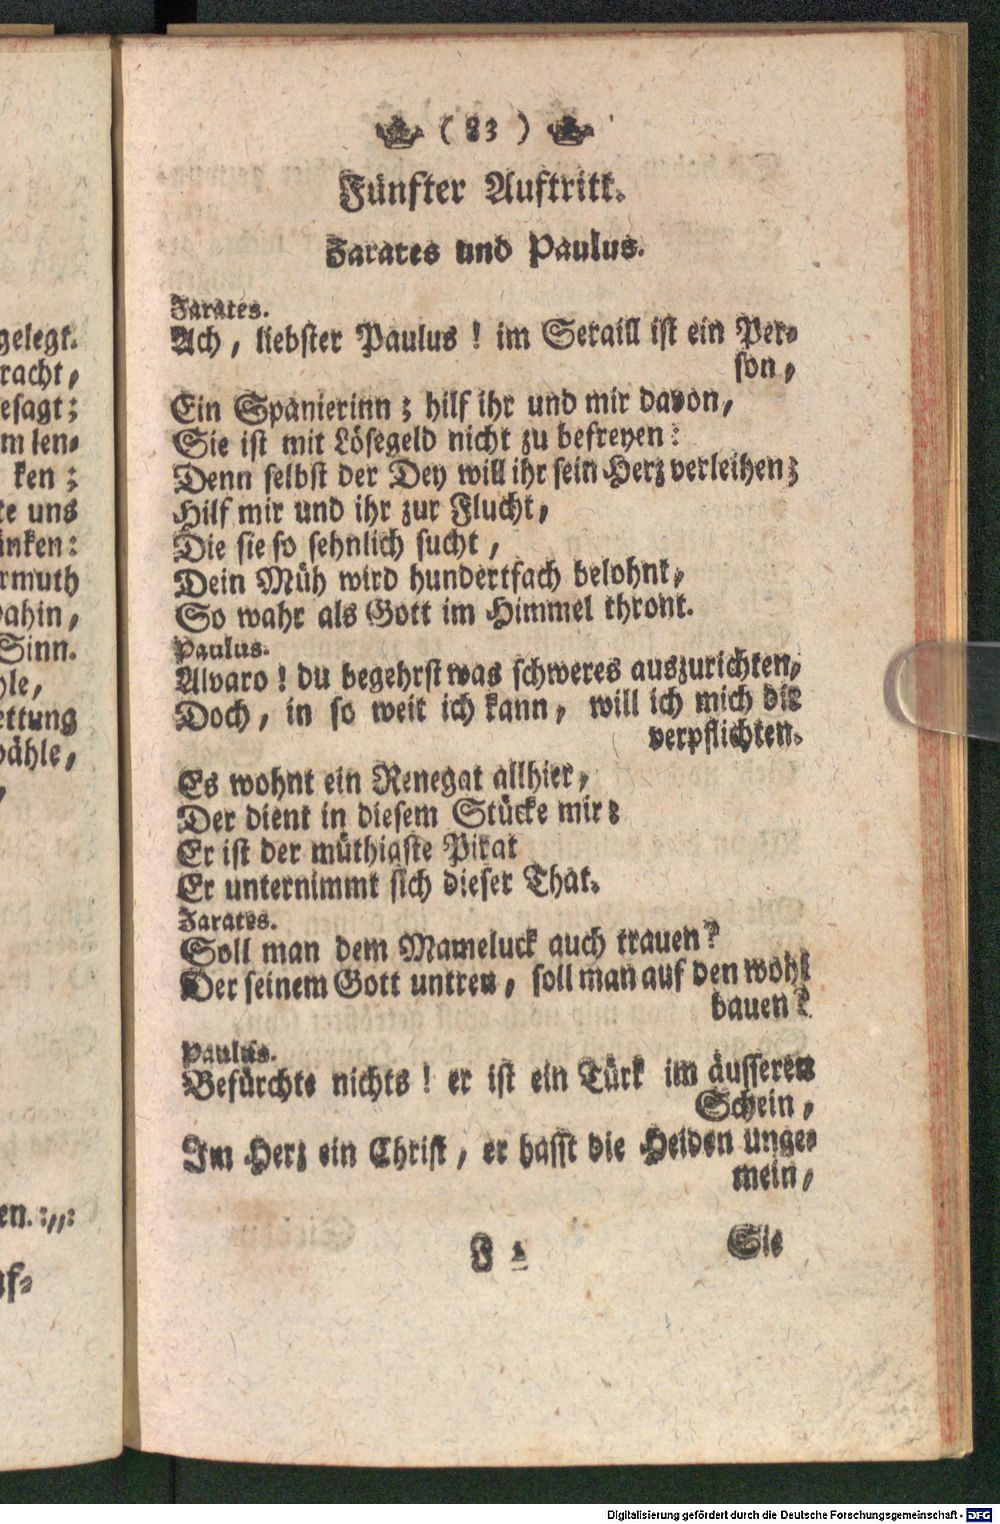 gelegt.
racht,
esagt;
m len-
ken;
te uns
änken:
rmuth
ahin,
Sinn.
hle,
ettung
wähle,
en.
uf-
( 83 )
Fünfter Auftritt.
Zarates und Paulus.
Zarates.
Ach, liebster Paulus! im Seraill ist ein Per-
son,
Ein Spanierinn; hilf ihr und mir davon,
Sie ist mit Lösegeld nicht zu befreyen:
Denn selbst der Dey will ihr sein Herz verleihen;
Hilf mir und ihr zur Flucht,
Die sie so sehnlich sucht,
Dein Müh wird hundertfach belohnt,
So wahr als Gott im Himmel thront.
Paulus.
Alvaro! du begehrst was schweres auszurichten,
Doch, in so weit ich kann, will ich mich dir
verpflichten.
Es wohnt ein Renegat allhier,
Der dient in diesem Stücke mir:
Er ist der müthigste Pirat
Er unternimmt sich dieser That.
Zarates.
Soll man dem Mameluck auch trauen?
Der seinem Gott untreu, soll man auf den wohl
bauen?
Paulus.
Befürchte nichts! er ist ein Türk im äusseren
Schein,
Im Herz ein Christ, er hasst die Heiden unge-
mein,
F 2
Sie
Digitalisierung gefördert durch die Deutsche Forschungsgemeinschaft - DFG